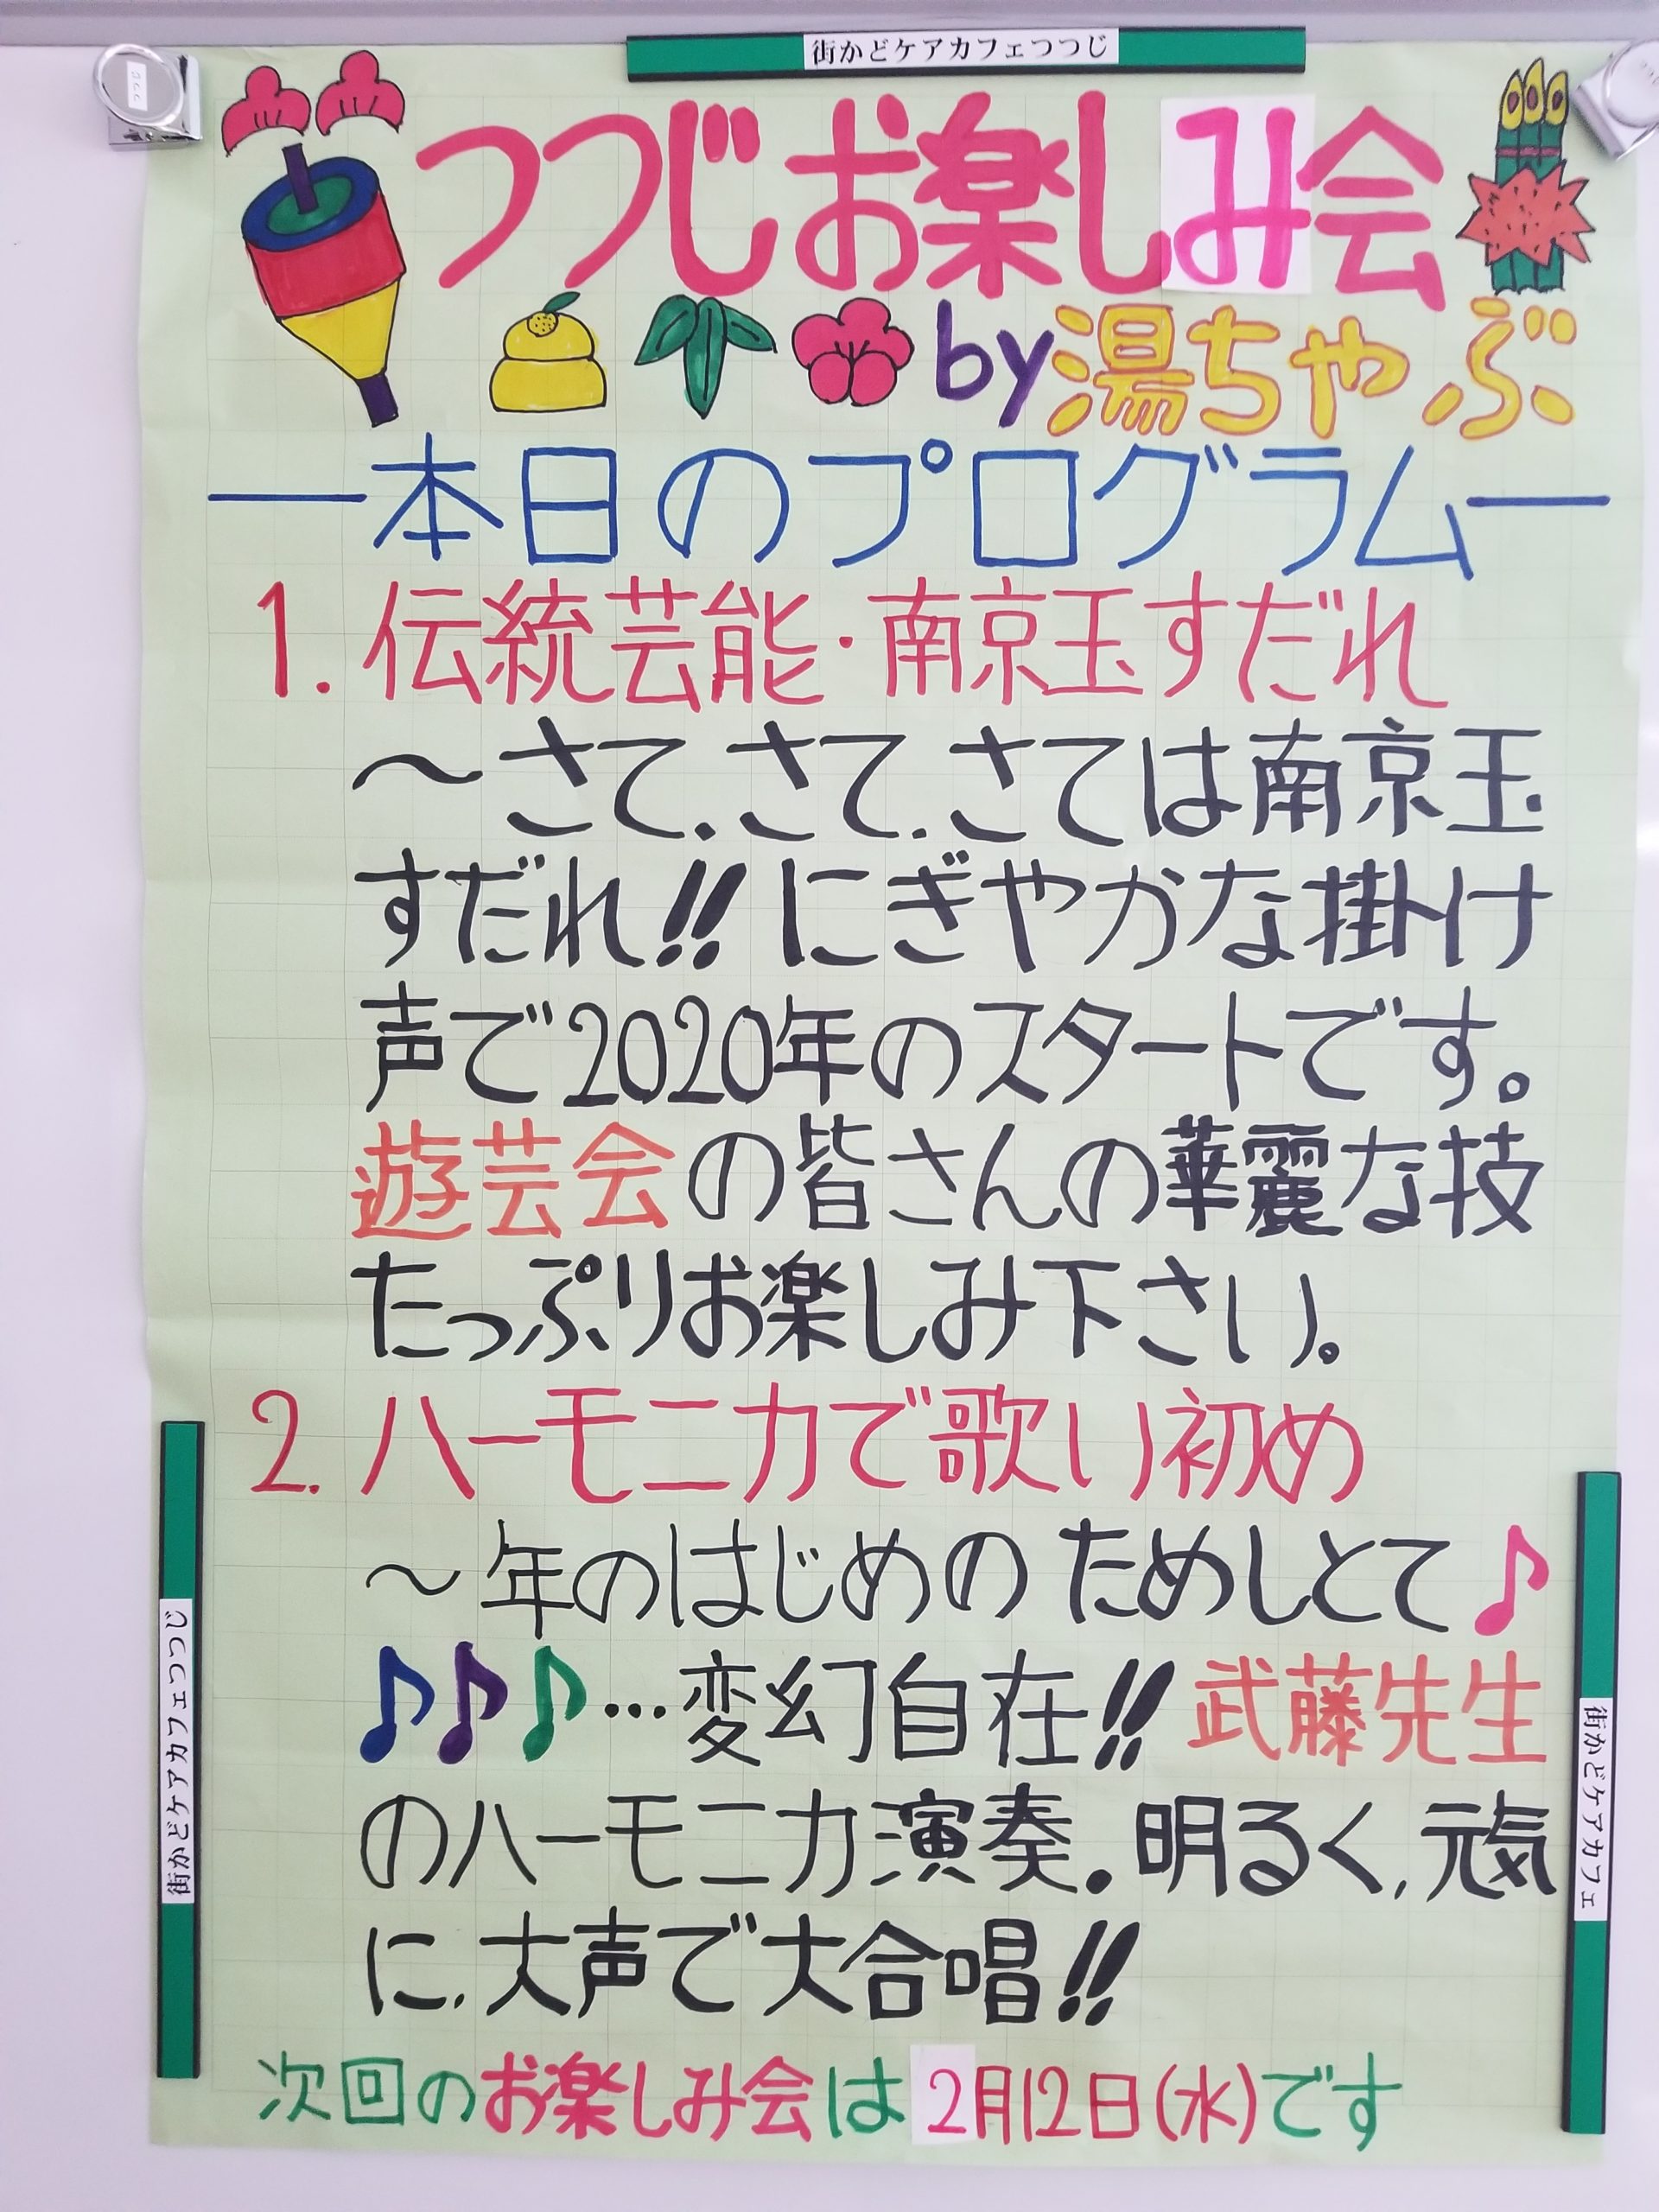 街かどケアカフェつつじ
つつじお楽しみ会
by湯ちゃぶ
―本日のプログラム―
1. 伝統芸能・南京玉すだれ
～さて、さて、さては南京玉
すだれ!! にぎやかな掛け
声で2020年のスタートです。
遊芸会の皆さんの華麗な技
たっぷりお楽しみ下さい。
2. ハーモニカで歌い初め
～年のはじめの ためしとて♪
♪♪♪…変幻自在!! 武藤先生
のハーモニカ演奏。明るく、元気
に、大声で大合唱!!
次回のお楽しみ会は2月12日(水)です
街かどケアカフェつつじ
街かどケアカフェ